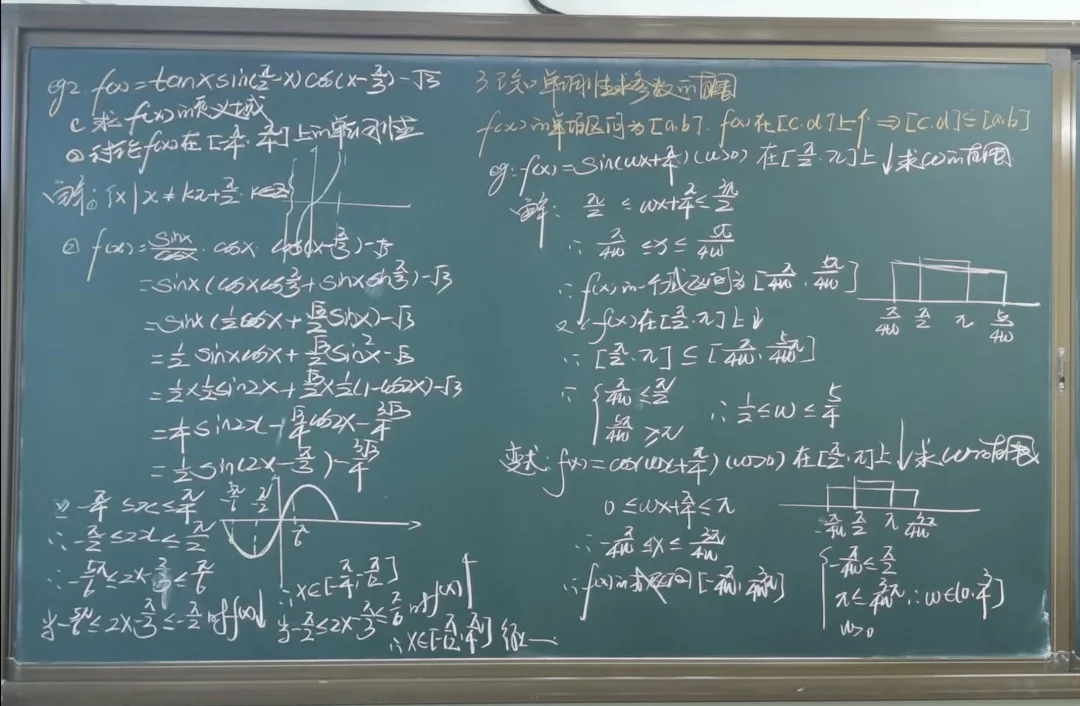 eg2 f(x)=tanxsin(π/2-x)cos(x-π/3)-√3
① 求f(x)的定义域
② 讨论f(x)在[-π/4,π/4]上的单调性
解:① {x|x≠kπ+π/2,k∈Z}
② f(x)=sinx/cosx·cosx·cos(x-π/3)-√3
=sinx(cosxcosπ/3+sinxsinπ/3)-√3
=sinx(1/2cosx+√3/2sinx)-√3
=1/2sinxcosx+√3/2sin²x-√3
=1/2×1/2sin2x+√3/2×1/2(1-cos2x)-√3
=1/4sin2x-√3/4cos2x-3√3/4
=1/2sin(2x-π/3)-3√3/4
∵-π/4≤x≤π/4
∴-π/2≤2x≤π/2
∴-5π/6≤2x-π/3≤π/6
-5π/6 -π/2 π/6
当-5π/6≤2x-π/3≤-π/2时f(x)↓
∴x∈[-π/4,-π/12]
当-π/2≤2x-π/3≤π/6时f(x)↑
∴x∈[-π/12,π/4]
3.已知单调性求参数的范围
f(x)的单增区间为[a,b],f(x)在[c,d]上↑⇒[c,d]⊆[a,b]
eg:f(x)=sin(ωx+π/4)(ω>0)在[π/2,π]上↓求ω的范围
解: π/2≤ωx+π/4≤3π/2
∴π/4ω≤x≤5π/4ω
∴f(x)的一个减区间为[π/4ω,5π/4ω]
又∵f(x)在[π/2,π]上↓
∴[π/2,π]⊆[π/4ω,5π/4ω]
∴{π/4ω≤π/2
5π/4ω≥π
∴1/2≤ω≤5/4
π/4ω π/2 π 5π/4ω
变式:f(x)=cos(ωx+π/4)(ω>0)在[π/2,π]上↓求ω的范围
0≤ωx+π/4≤π
∴-π/4ω≤x≤3π/4ω
∴f(x)的减区间[-π/4ω,3π/4ω]
-π/4ω π/2 π 3π/4ω
{-π/4ω≤π/2
π≤3π/4ω ∴ω∈(0,3/4]
ω>0